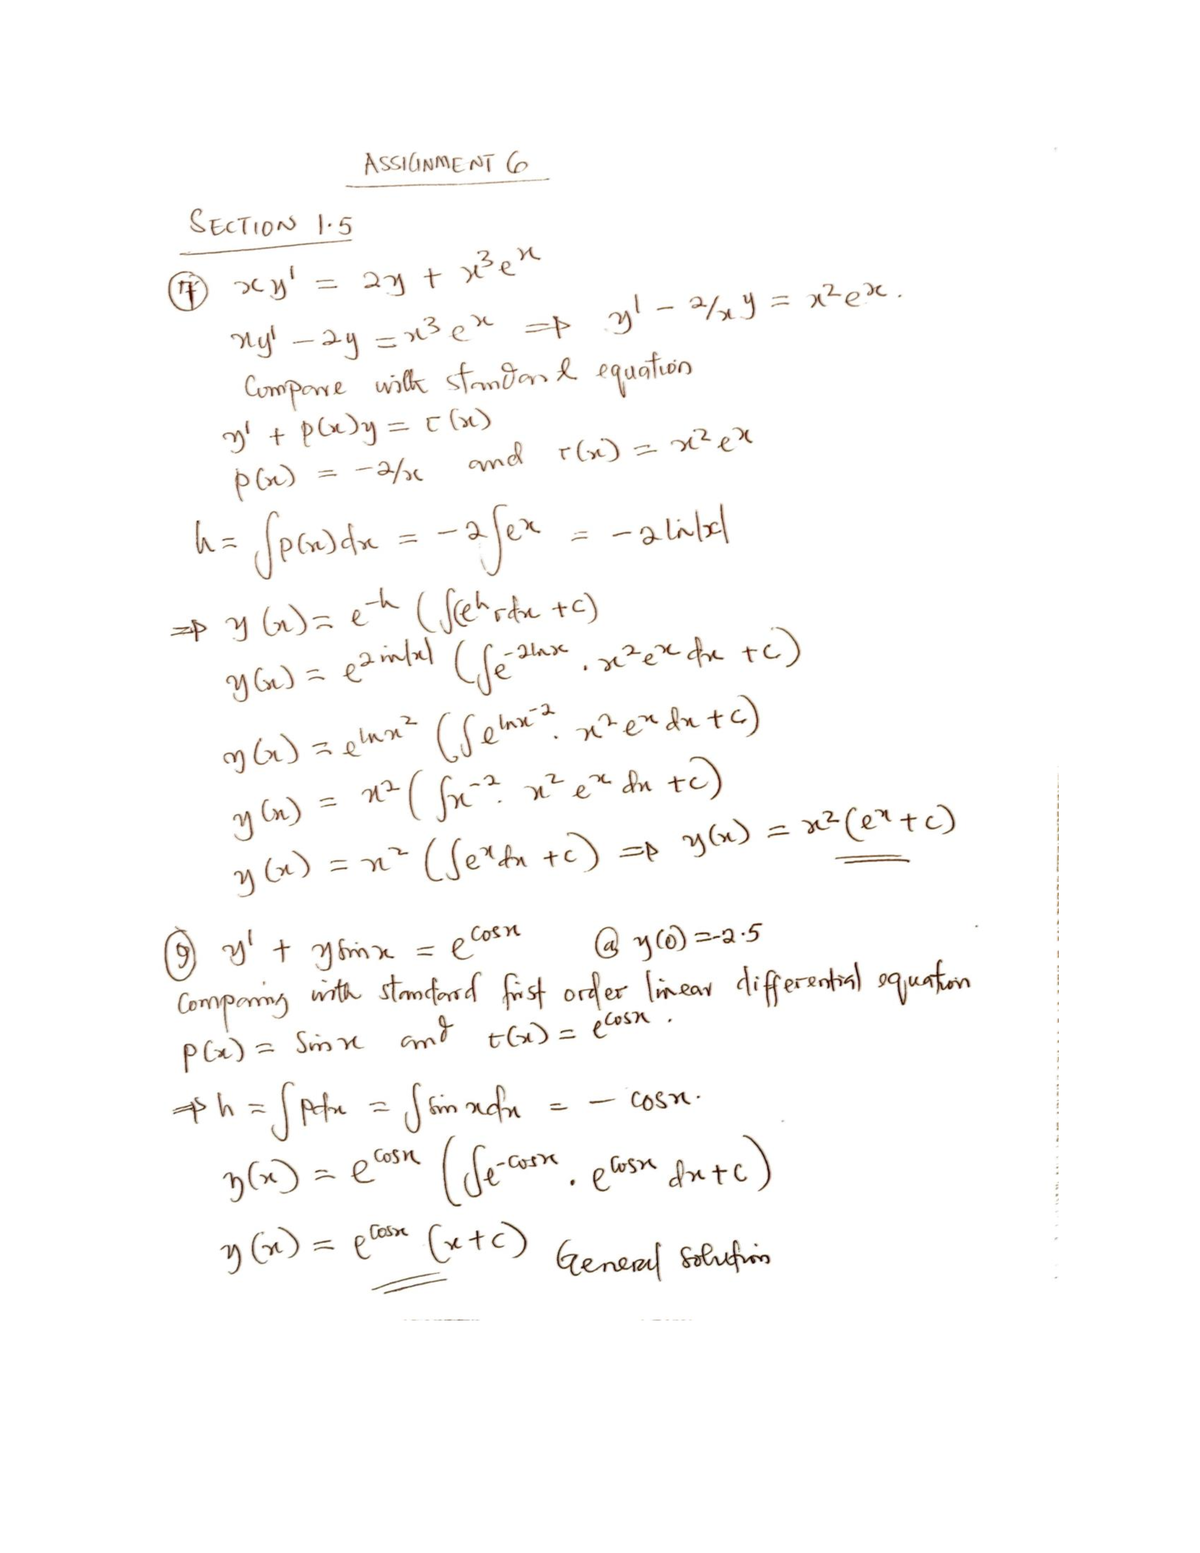 ASSIGNMENT 6
SECTION 1.5
⑦ xy' = 2y + x³eˣ
xy' - 2y = x³eˣ ⇒ y' - 2/x y = x²eˣ.
Compare with standard equation
y' + p(x)y = r(x)
p(x) = -2/x and r(x) = x²eˣ
h = ∫p(x)dx = -2∫ = -2 ln|x|
⇒ y(x) = e⁻ʰ (∫eʰ r dx + c)
y(x) = e^{2 ln|x|} (∫e^{-2lnx} . x²eˣ dx + c)
y(x) = e^{lnx²} (∫e^{lnx⁻²} . x²eˣ dx + c)
y(x) = x² (∫x⁻² . x² eˣ dx + c)
y(x) = x² (∫eˣdx + c) ⇒ y(x) = x²(eˣ + c)
⑨ y' + y sinx = e^{cosx} @ y(0) = -2.5
Comparing with standard first order linear differential equation
p(x) = Sin x and r(x) = e^{cosx}.
⇒ h = ∫pdx = ∫sin xdx = - cosx.
y(x) = e^{cosx} (∫e^{-cosx} . e^{cosx} dx + c)
y(x) = e^{cosx} (x + c) General Solution